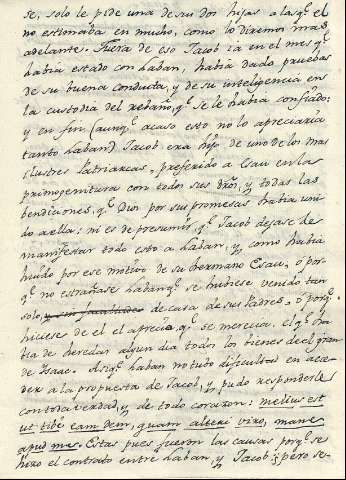 se, solo le pide una de sus dos hijas a las q.^e el
no estimaba en mucho, como lo diremos mas
adelante. Fuera de eso Jacob: a en el mes q.^e
habia estado con Laban, habia dado pruebas
de su buena conducta, y de su inteligencia en
la custodia del rebaño, q.^e se le habia confiado:
y en fin (aunq.^e acaso esto no lo apreciaria
tanto Laban) Jacob era hijo de uno de los mas
ilustres Patriarcas, preferido a Esau en las
primogenituras con todos sus dros, y todas las
bendiciones, q.^e Dios por sus promesas habia uni-
do a ella: ni es de presumir, q.^e Jacob dejase de
manifestar todo esto a Laban, y como habia
huido por ese motivo de su hermano Esau, ó por-
q.^e no estrañase Laban q.^e se hubiese venido tan
solo, de casa de sus Padres, ó porq.^e
hiciese de el el aprecio q.^e se merecia. El q.^e ha-
bia de heredar algun dia todos los bienes del gran-
de Isaac. Asi q.^e Laban no tubo dificultad en acce-
der a la propuesta de Jacob, y pudo responderle
con toda verdad, y de todo corazon: melius est
ut tibi eam dem, quam alteri viro, mane
apud me. Estas pues fueron las causas porq.^e se
hizo el contrato entre Laban, y Jacob; pero se-